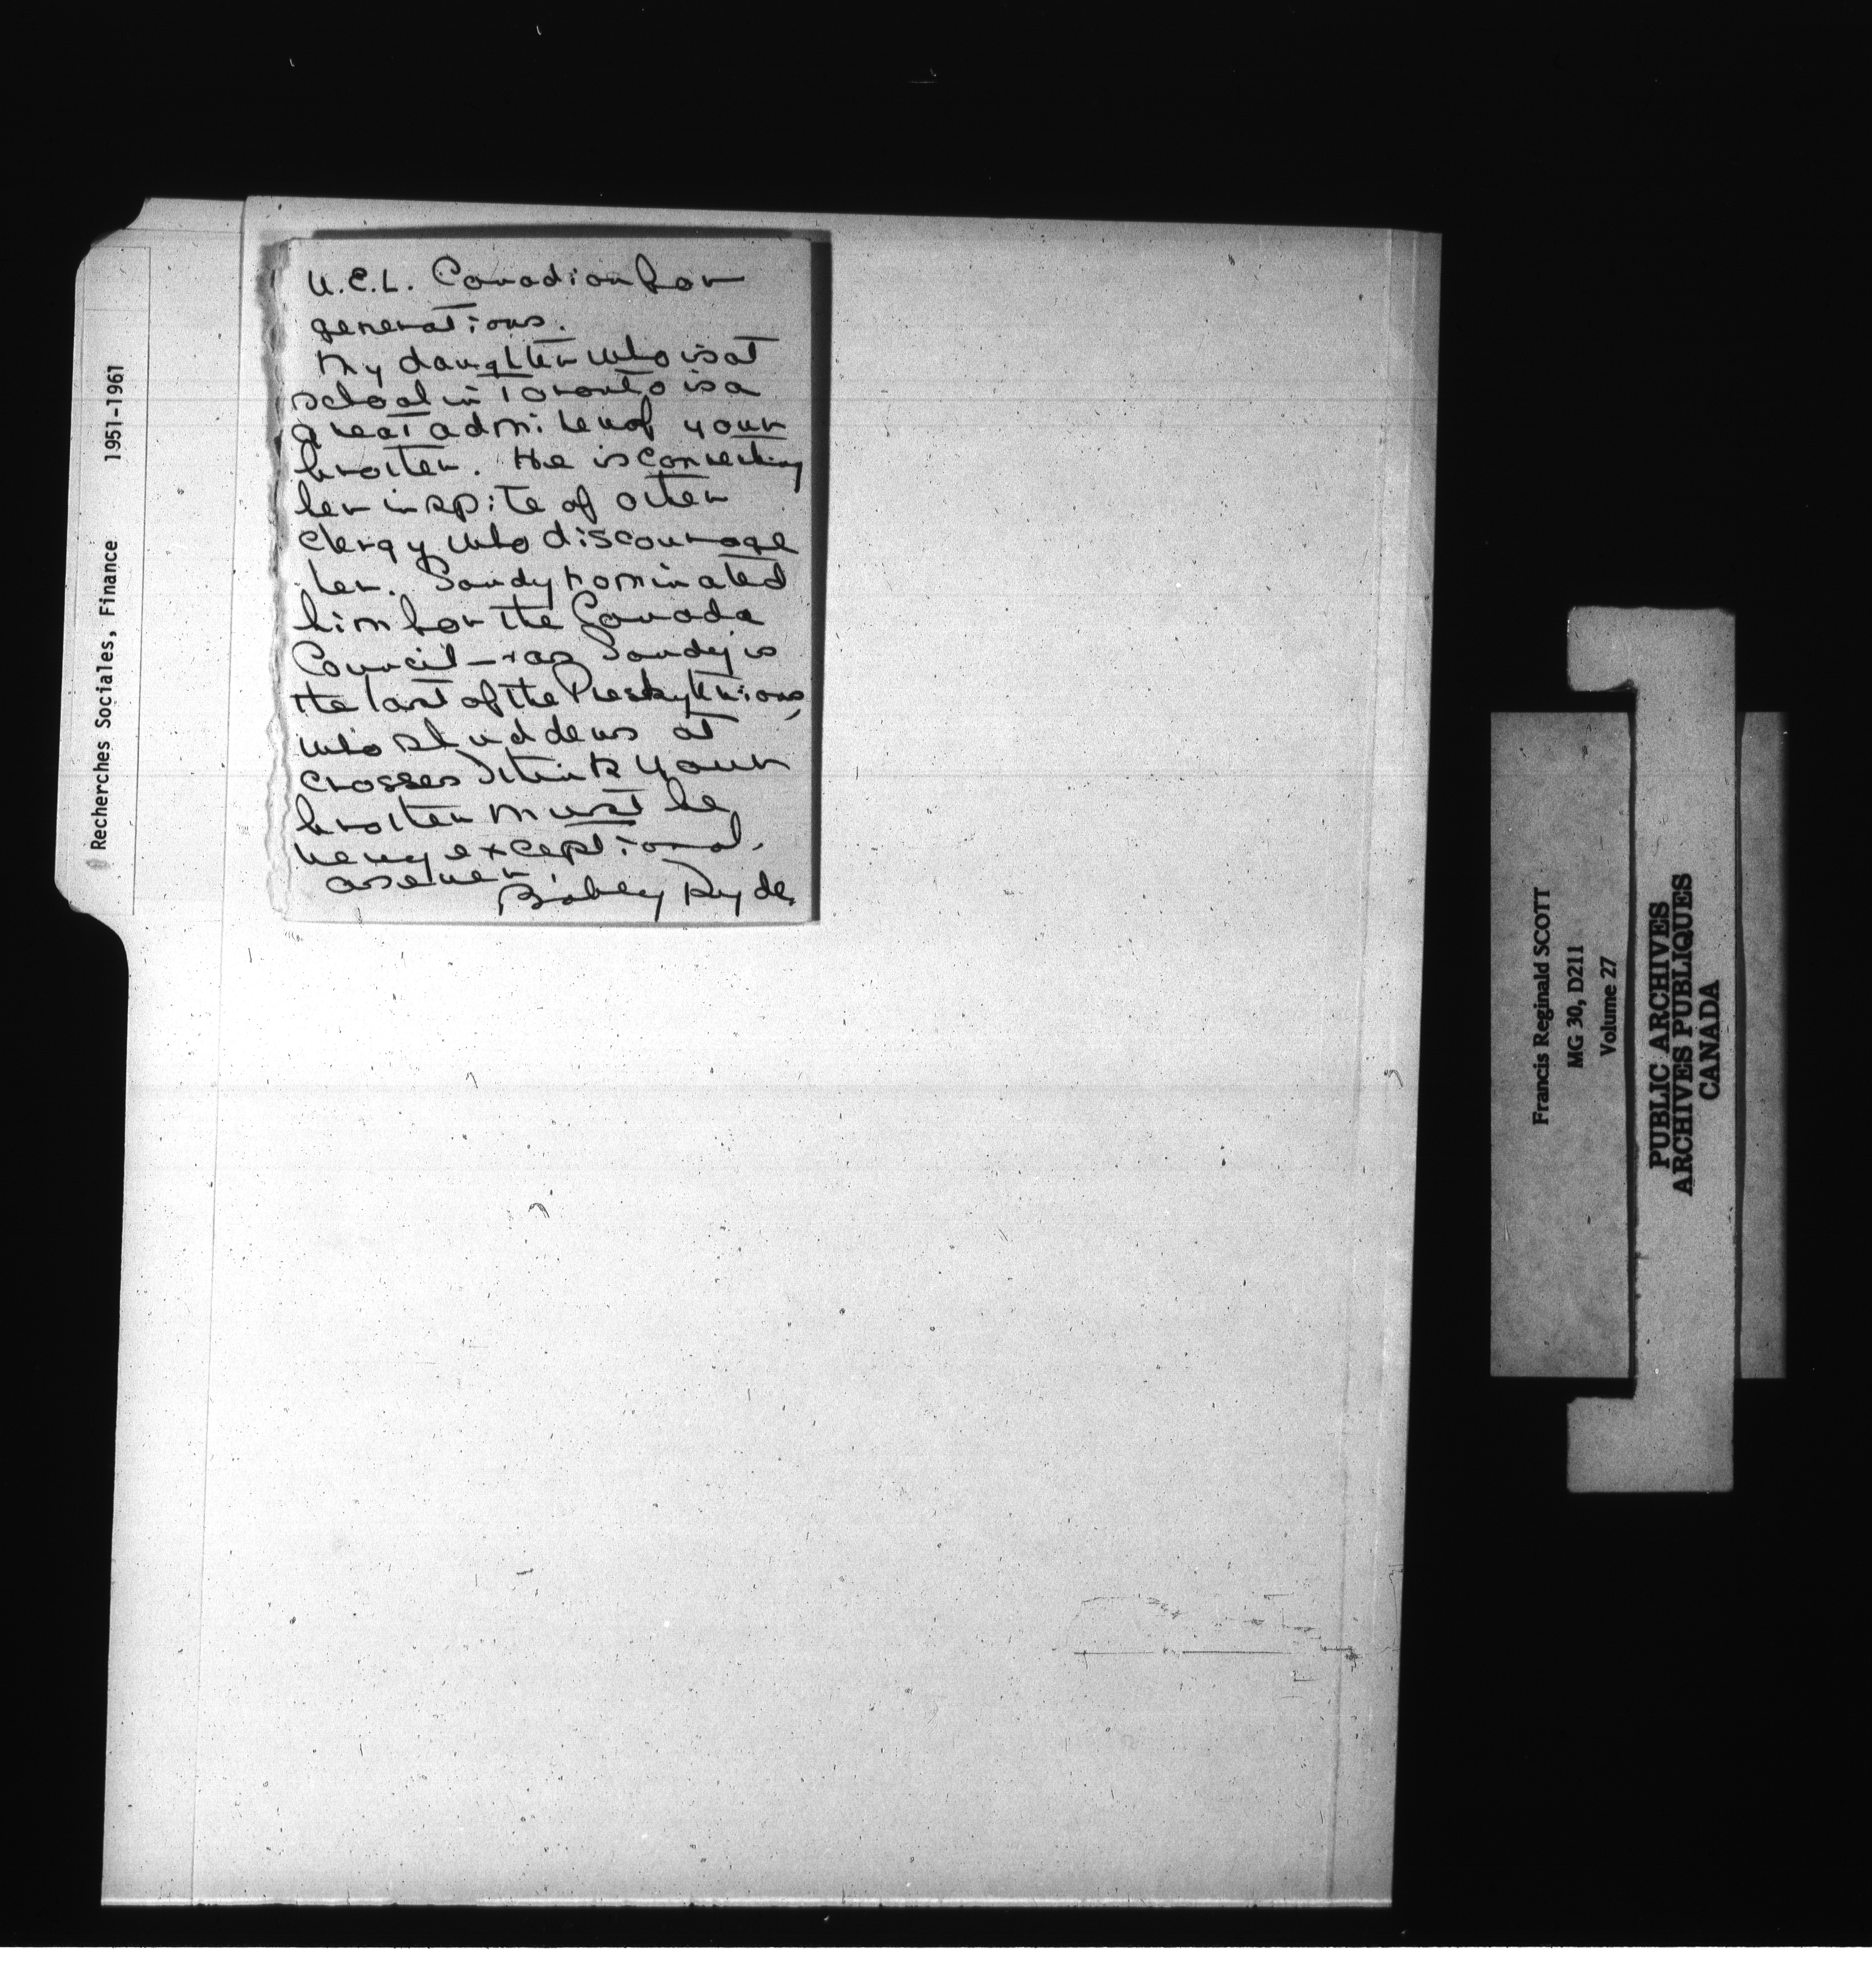 U.E.L. Canadian for
generations.
My daughter who is at
school in Toronto is a
great admirer of your
brother. He is converting
her in spite of other
clergy who discourage
her. Sandy nominated
him for the Canada
Council - + as Sandy is
the last of the Presbyterians,
who shudders at
crosses I think your
brother must be
very exceptional.
as ever,
Ryde
Recherches Sociales, Finance 1951-1961
Francis Reginald SCOTT
MG 30, D211
Volume 27
PUBLIC ARCHIVES
ARCHIVES PUBLIQUES
CANADA